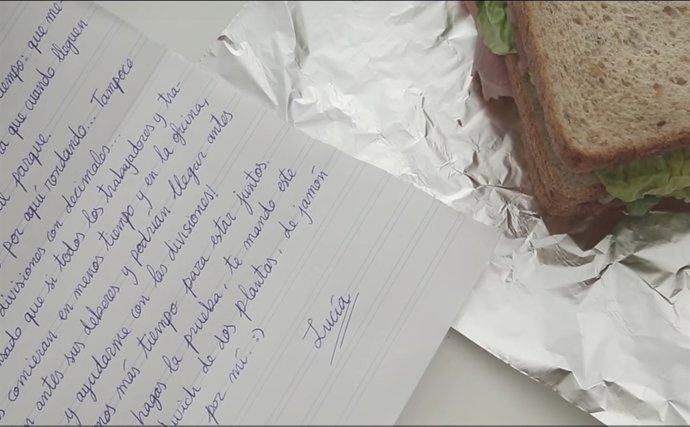 tiempo: que me
a que cuando lleguen
el parque.
por aquí rondando... Tampoco
divisiones con decimales...
sado que si todos los trabajadores y tra-
s comieran en menos tiempo y en la oficina,
n antes sus deberes y podrían llegar antes
y ayudarme con las divisiones!
mos más tiempo para estar juntos.
hagas la prueba, te mando este
dwich de dos plantas, de jamón
por mí. :)
Lucía